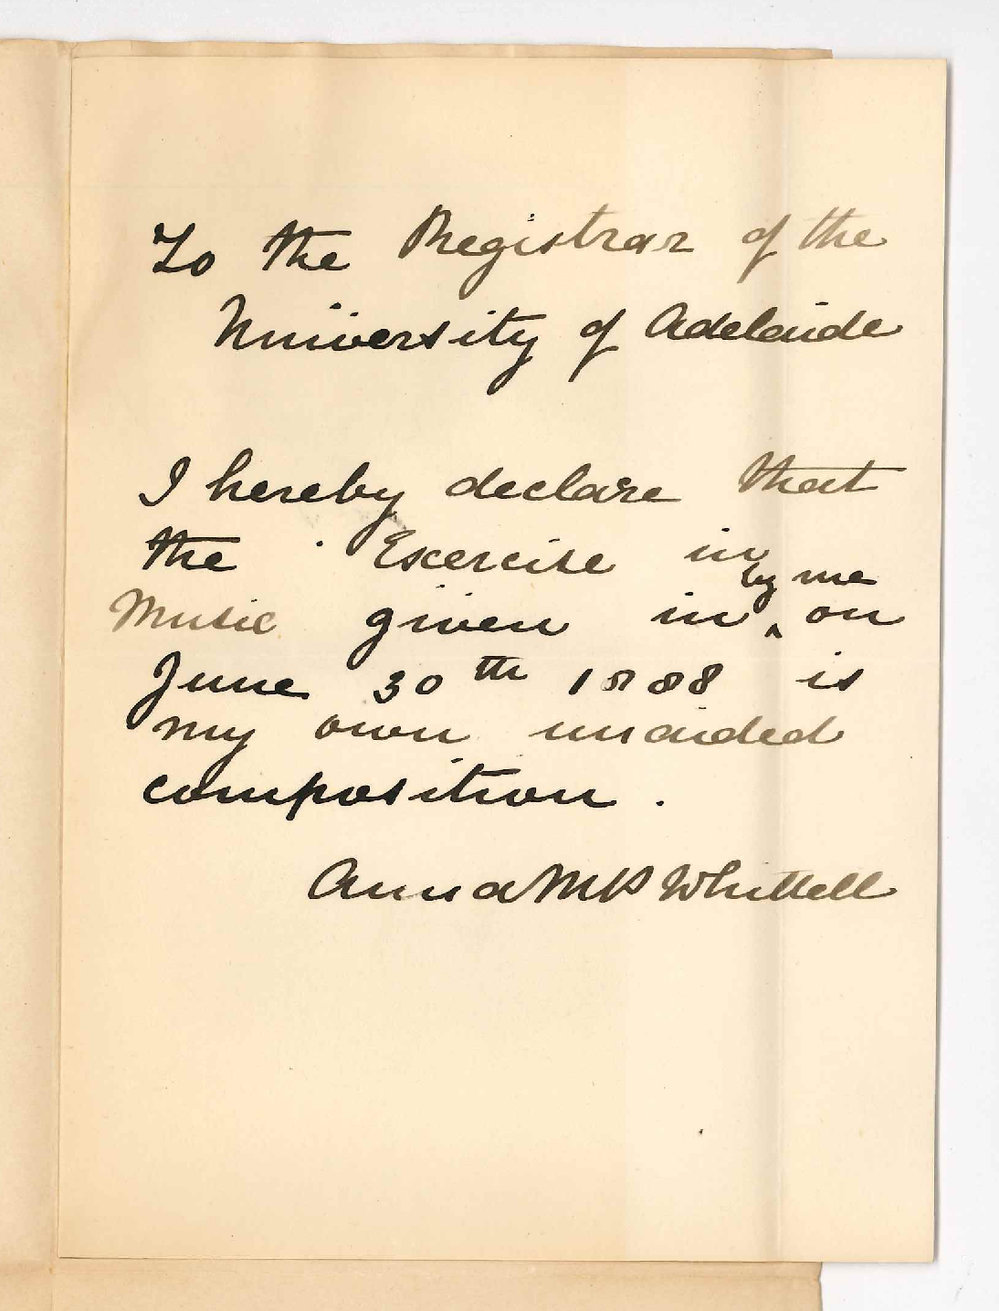 To the Registrar of the
University of Adelaide
I hereby declare that
the Exercise in
Music given in by me on
June 30th 1888 is
my own unaided
composition.
Anna M P Whittell